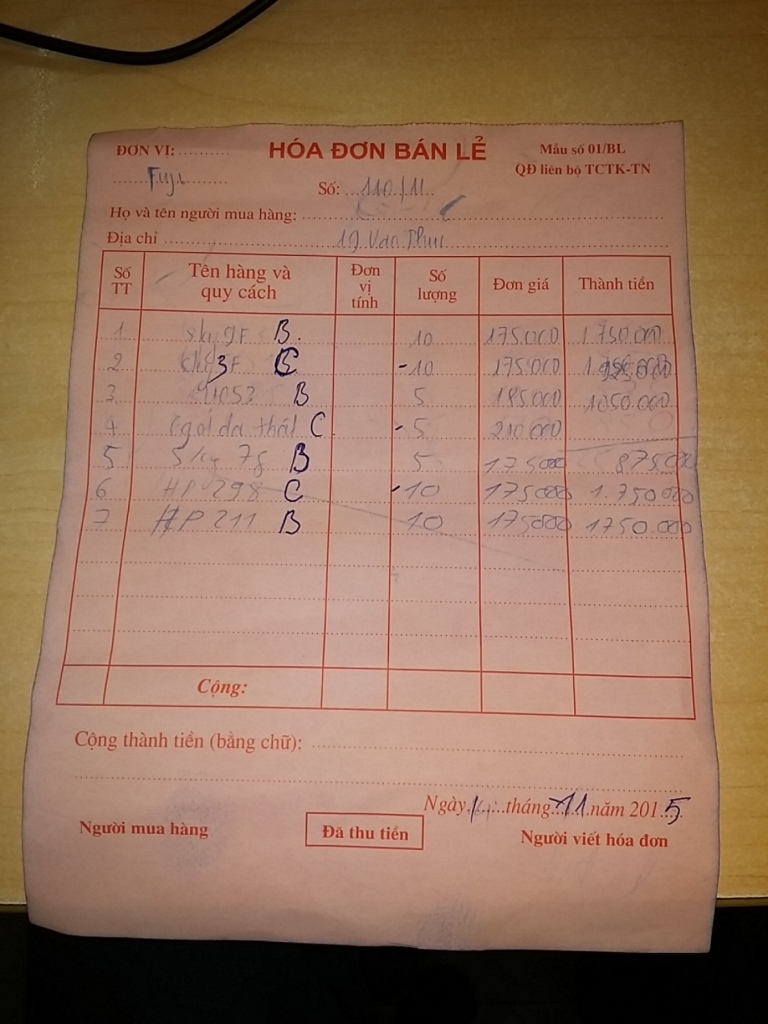 HÓA ĐƠN BÁN LẺ
ĐƠN VỊ:
Fuji
Mẫu số 01/BL
QĐ liên bộ TCTK-TN
Số: 110/11
Họ và tên người mua hàng:
Địa chỉ 19 Vạn Phúc
Số TT Tên hàng và quy cách Đơn vị tính Số lượng Đơn giá Thành tiền
1 B. 10 175.000 1.750.000
2 C -10 175000
3 B 5 185.000 1050.000
4 C -5 210000
5 5 kg 7f B 5 175000 875000
6 HP 298 C -10 175000 1.750000
7 HP 211 B 10 175000 1750.000
Cộng:
Cộng thành tiền (bằng chữ):
Ngày tháng 11 năm 2015
Người mua hàng
Đã thu tiền
Người viết hóa đơn